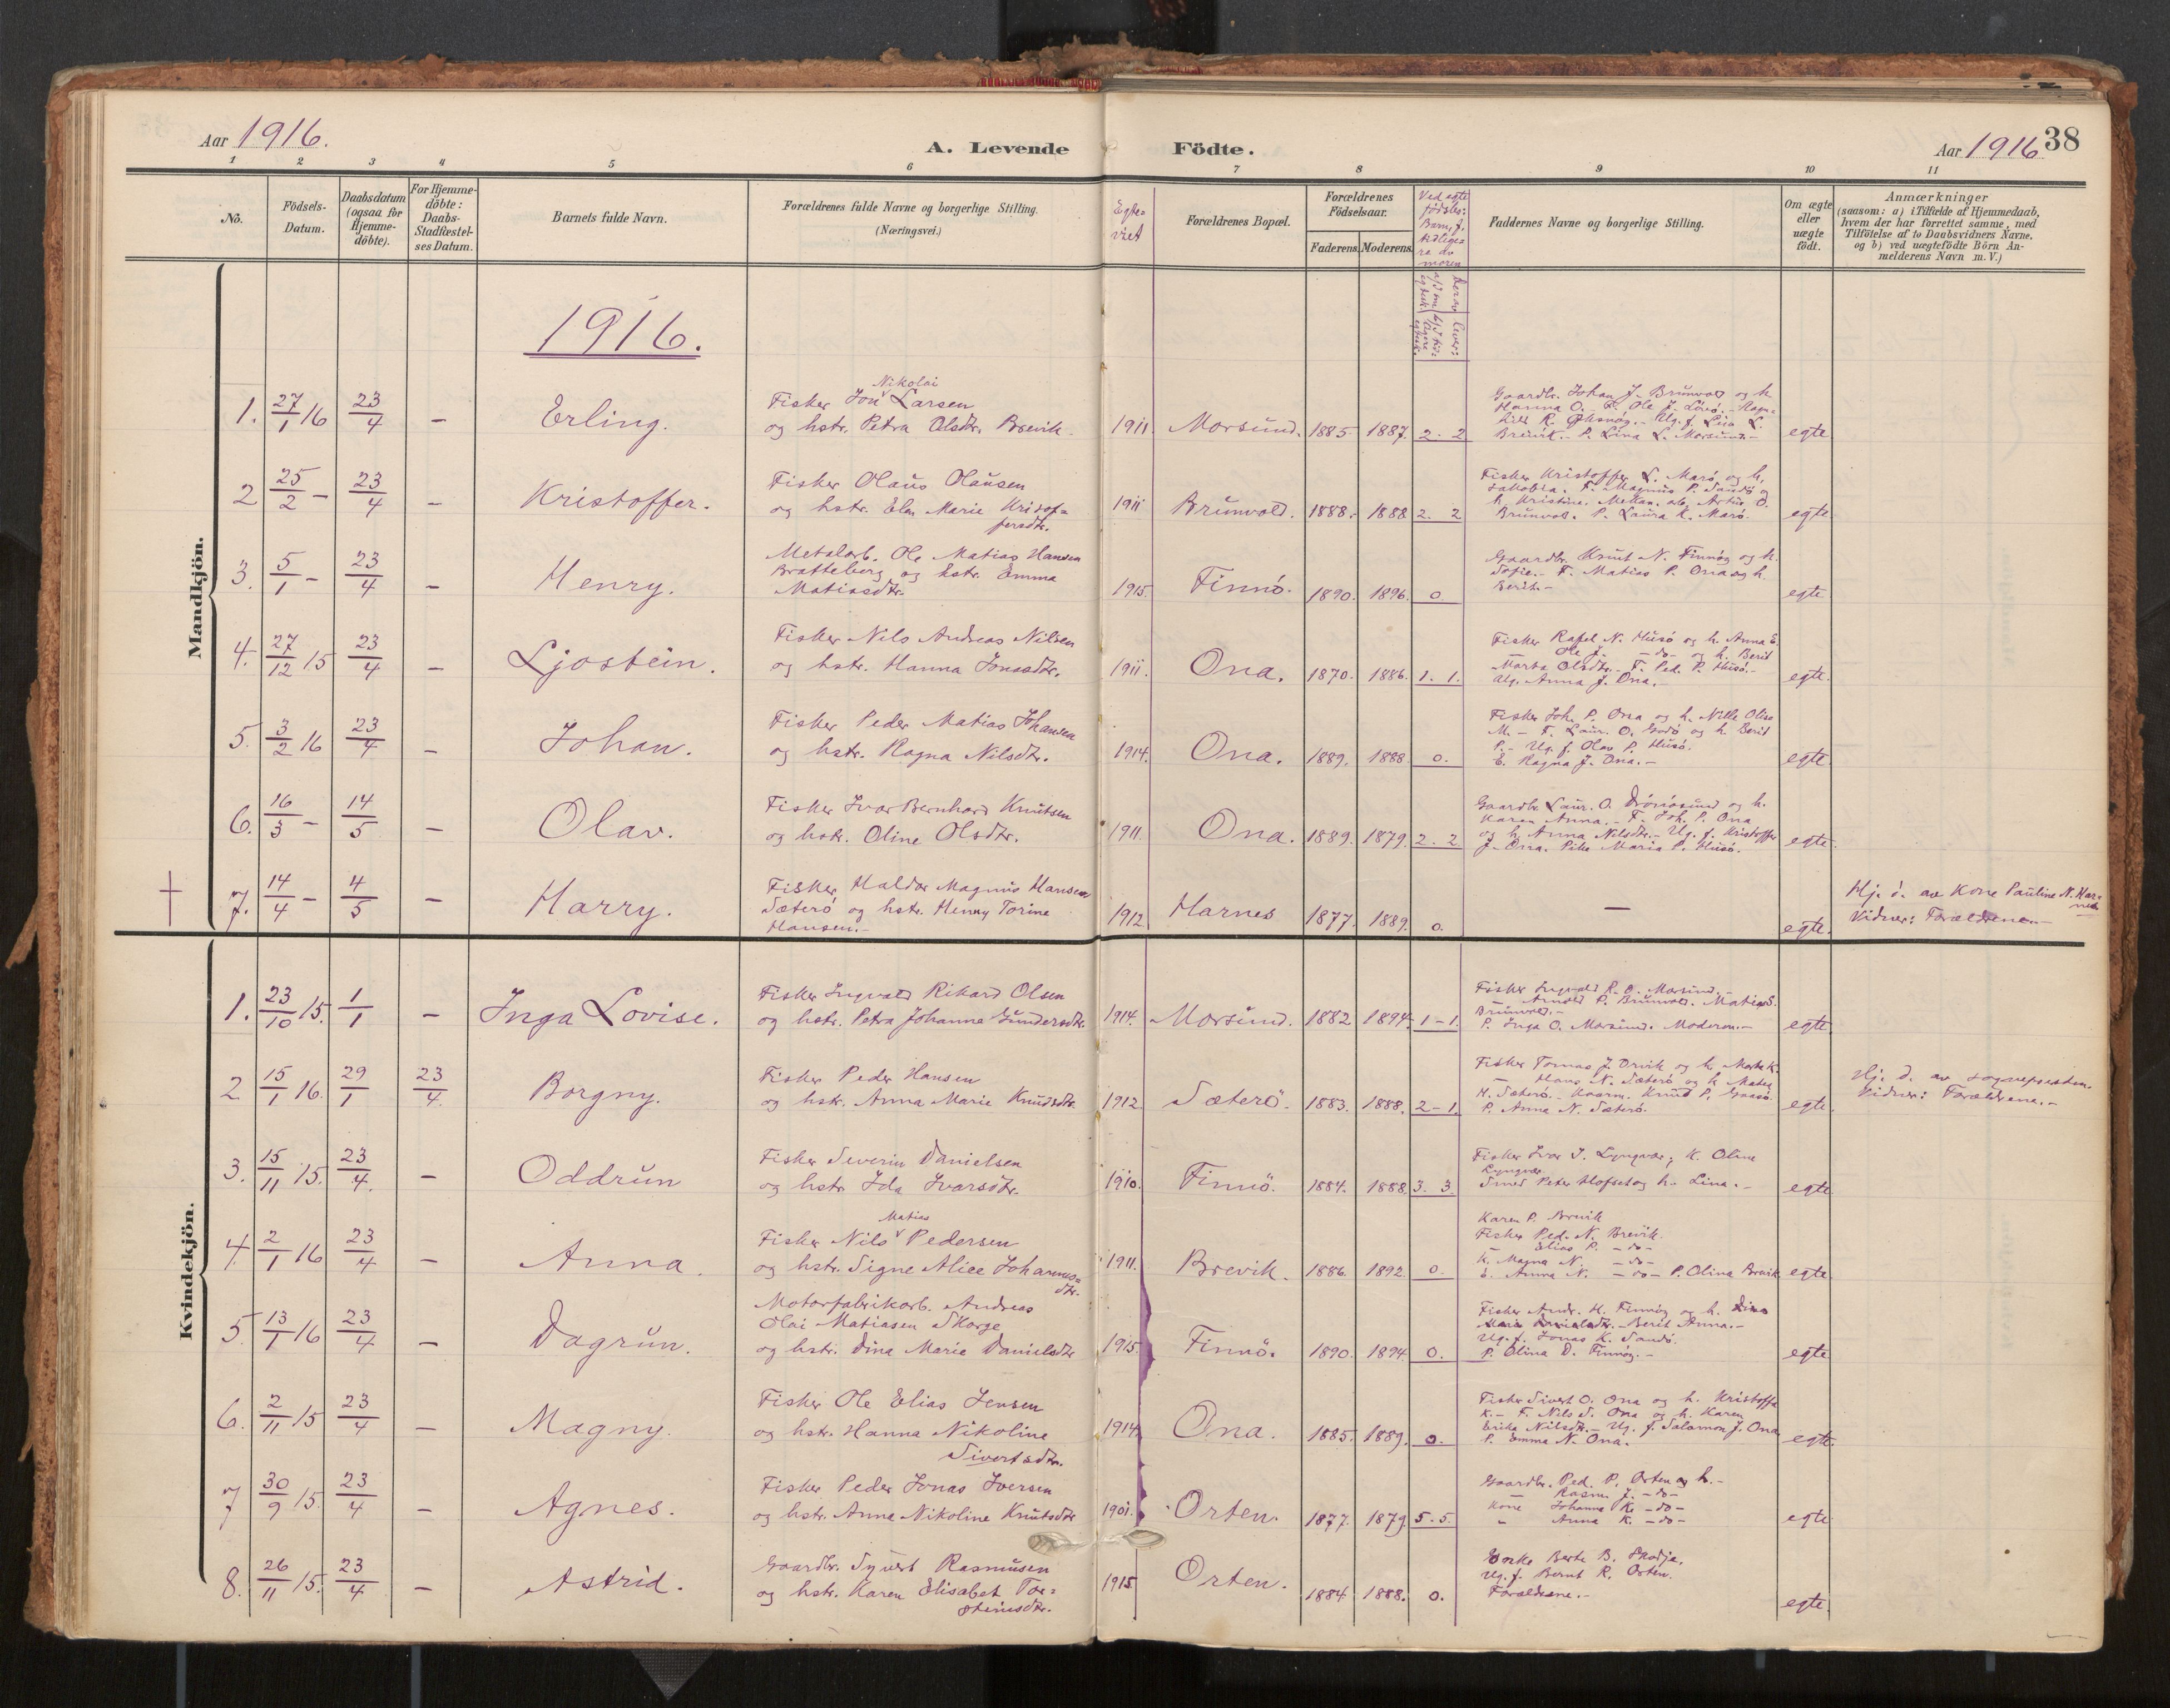 Aar 1916.
A. Levende Födte.
Aar 1916 38
1 2 3 4 5 6 7 8 9 10 11
No.
Födsels-
Datum.
Daabsdatum
(ogsaa for
Hjemme-
döbte).
For Hjemme-
döbte:
Daabs-
Stadfæstel-
ses Datum.
Barnets fulde Navn.
Forældrenes fulde Navne og borgerlige Stilling.
(Næringsvei.)
Egte-
viet
Forældrenes Bopæl.
Forældrenes
Födselsaar.
Faderens. Moderens.
Ved egte
fødsler:
Barn, f.
tidlige-
re av
moren
Faddernes Navne og borgerlige Stilling.
Om ægte
eller
uægte
födt.
Anmærkninger
(saasom: a) i Tilfælde af Hjemmedaab,
hvem der har forrettet samme, med
Tilföielse af to Daabsvidners Navne.
og b) ved uægtefödte Börn An-
melderens Navn m. V.)
1916.
Mandkjön.
1. 27/1 16 23/4 – Erling.
Fisker Jon Nikolai Larsen
og hstr. Petra Olsdtr. Brevik
1911 Morsund. 1885. 1887. 2. 2
Gaardbr. Johan J. Brunvold og h.
Hanna O. Ole J.
Brevik. P. Lina L. Morsund.
egte
2 25/2 – 23/4 – Kristoffer.
Fisker Olaus Olausen
og hstr. Elen Marie Kristof=
fersdtr.
1911 Brunvold. 1888. 1888 2. 2
Fisker Kristoffer L. Marø og h.
Jakobia. F. Magnus P. Sandø og
h. Kristine. Arthur O.
Brunvold. P. Laura K. Marø.
egte
3. 5/1 – 23/4 – Henry.
Metalarb. Ole Matias Hansen
Bratteberg og hstr. Emma
Matiasdtr.
1915. Finnö. 1890. 1896. 0
Gaardbr. Knut N. Finnøy og h.
Sofie. – F. Matias P. Ona og h.
Berit. –
egte
4. 27/12 15 23/4 – Ljostein.
Fisker Nils Andreas Nilsen
og hstr. Hanna Jonasdtr.
1911. Ona. 1870. 1886. 1. 1.
Fisker Rafel N. Husø og h. Anna E.
– Ole J. – do – og h. Berit
Marta Olsdtr. – F. Ped. P. Husø. –
Anna J. Ona. –
egte.
5. 3/2 16 23/4 – Johan.
Fisker Peder Matias Johansen
og hstr. Ragna Nilsdtr.
1914. Ona. 1889. 1888. 0.
Fisker Joh. P. Ona og h. Nille Olisa
M. – F. Laur. O. Godø og h. Berit
P. – Ug. f. Olav P. Husø.
E. Ragna J. Ona. –
egte.
6. 16/3 – 14/5 – Olav.
Fisker Ivar Bernhard Knutsen
og hstr. Oline Olsdtr.
1911. Ona. 1889. 1879. 2. 2
Gaardbr. Laur. O. og h.
Karen Anna. – F. Joh. P. Ona
og h. Anna Nilsdtr. – Ug. f. Kristoffer
J. Ona. Pike Maria P. Husø.
egte.
† 7. 14/4 – 4/5 – Harry.
Fisker Haldor Magnus Hansen
Sæterö og hstr. Henny Torine
Hansen. –
1912. Harnes 1877. 1889. 0.
–
egte.
Hj. d. av Kone Pauline N. Har=
nes
Vidner: Forældrene. –
Kvindekjön.
1. 23/10 15. 1/1 – Inga Lovise.
Fisker Ingvald Rikard Olsen
og hstr. Petra Johanne Gundersdtr.
1914. Morsund. 1882 1894. 1 – 1.
Fisker Ingvald R. O. Morsund. –
– Arnold P. Brunvold. Matias S.
Brunvold. –
P. Inga O. Morsund. Moderen. –
egte
2 15/1 16. 29/1 23/4. Borgny.
Fisker Peder Hansen
og hstr. Anna Marie Knudsdtr.
1912. Sæterö. 1883. 1888. 2 – 1.
Fisker Tomas J. Orvik og h. Marta K.
– Hans N. Sæterø og h. Matea
H. Sæterö. Knud P.
P. Anna N. Sæterö.
egte
Hj. d. av sognepresten.
Vidner: Forældrene. –
3. 15/11 15. 23/4. – Oddrun
Fisker Severin Danielsen
og hstr. Ida Ivarsdtr.
1910. Finnö. 1884. 1888. 3. 3.
Fisker Ivar I. Lyngvær; K. Oline
Lyngvær.
Smed Peter Hofset og h. Lina. –
egte
4. 2/1 16 23/4 – Anna.
Fisker Nils Matias Pedersen
og hstr. Signe Alice Johannes=
dtr.
1911. Brevik. 1886. 1892. 0.
Karen P. Brevik
Fisker Ped. N. Brevik.
– Elias P. – do –
K. Magna N. – do –
E. Anna N. – do – P. Olina Brevik
egte
5. 13/1 16 23/4 – Dagrun.
Motorfabrikarb. Andreas
Olai Matiasen Skorge
og hstr. Dina Marie Danielsdtr
1915. Finnö. 1890. 1894. 0.
Fisker Andr. H. Finnøy og h. Dina
Marie Danielsdtr. – Berit Anna. –
Ug. f. Jonas K. Sandö.
P. Olina D. Finnöy. –
egte
6. 2/11 15 23/4 – Magny.
Fisker Ole Elias Jensen
og hstr. Hanna Nikoline
Sivertsdtr.
1914. Ona. 1885. 1889. 0.
Fisker Sivert O. Ona og h. Kristoffa
K. – F. Nils S. Ona og h. Karen
Erika Nilsdtr. – Ug. f. Salamon J. Ona
P. Emma N. Ona.
egte.
7 30/9 15. 23/4 – Agnes.
Fisker Peder Jonas Iversen
og hstr. Anna Nikoline Knutsdtr
1901. Orten. 1877. 1879. 5. 5.
Gaardbr. Ped. P. Orten og h. –
– Rasm. J. – do –
Kone Johanna K. – do –
" Anna K. – do –
egte
8. 26/11 15. 23/4 – Astrid.
Gaardbr. Syvert Rasmusen
og hstr. Karen Elisabet Tor=
steinsdtr.
1915 Orten. 1884 1888. 0.
Enke Berte B. Skodje.
Ug. f. Bernt R. Orten.
Forældrene. –
egte.